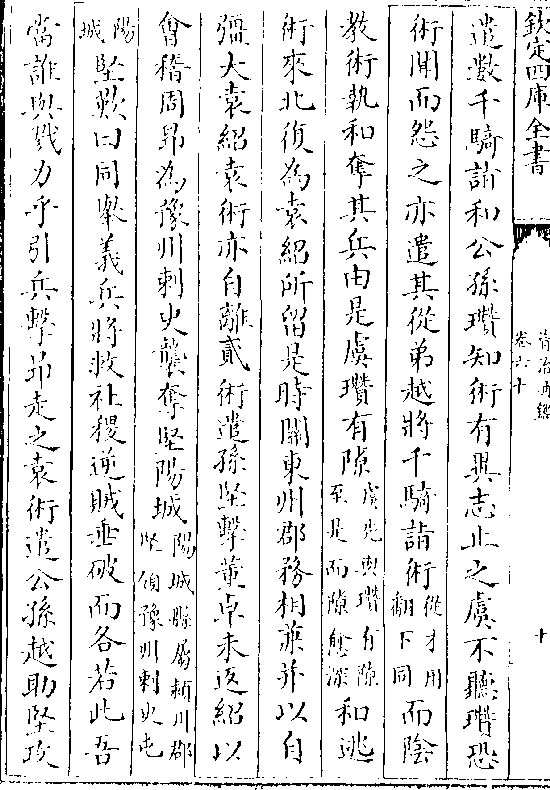 欽定四庫全書
資治通鑑
卷六十
十
遣數千騎詣和公孫瓚知術有異志止之虞不聽瓚恐
術聞而怨之亦遣其從弟越將千騎詣術從才用翻下同而陰
教術執和奪其兵由是虞瓚有隙虞先與瓚有隙至是而隙愈深和逃
術來北復為袁紹所留是時關東州郡務相兼并以自
彊大袁紹袁術亦自離貳術遣孫堅擊董卓未返紹以
會稽周昂為豫州刺史襲奪堅陽城陽城縣屬潁川郡堅領豫州刺史屯
陽城堅歎曰同舉義兵將救社稷逆賊垂破而各若此吾
當誰與戮力乎引兵擊昂走之袁術遣公孫越助堅攻